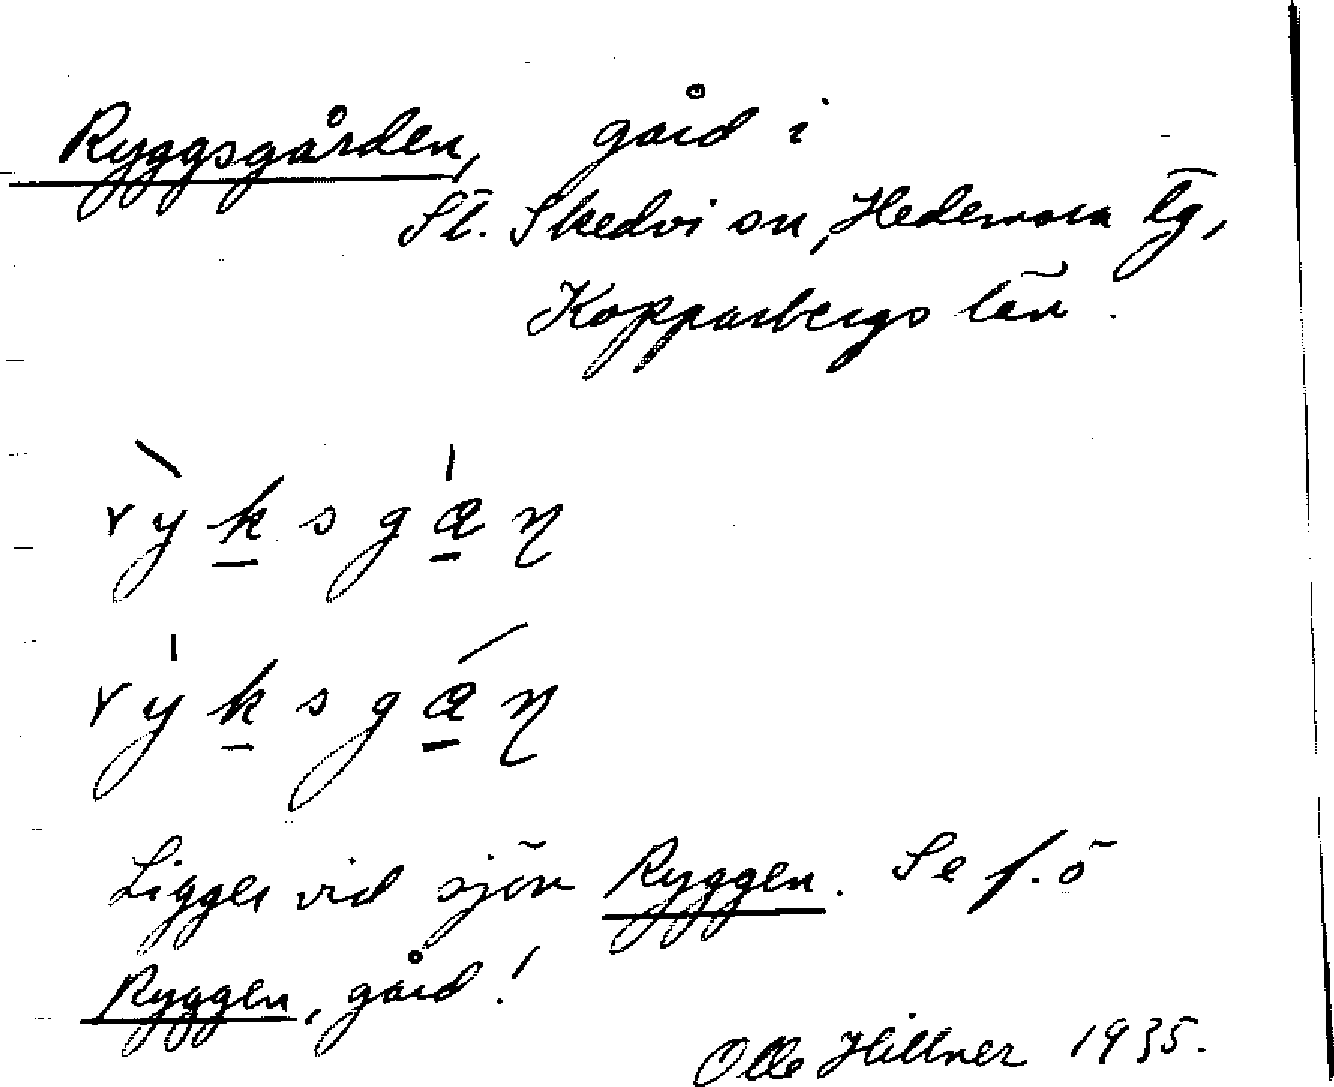 Ryggsgården, gård i
St. Skedvi sn, Hedemora tg,
Kopparbergs län.
Ligger vid sjön Ryggen. Se f. ö
Ryggen, gård!
Olle Hillner 1935.